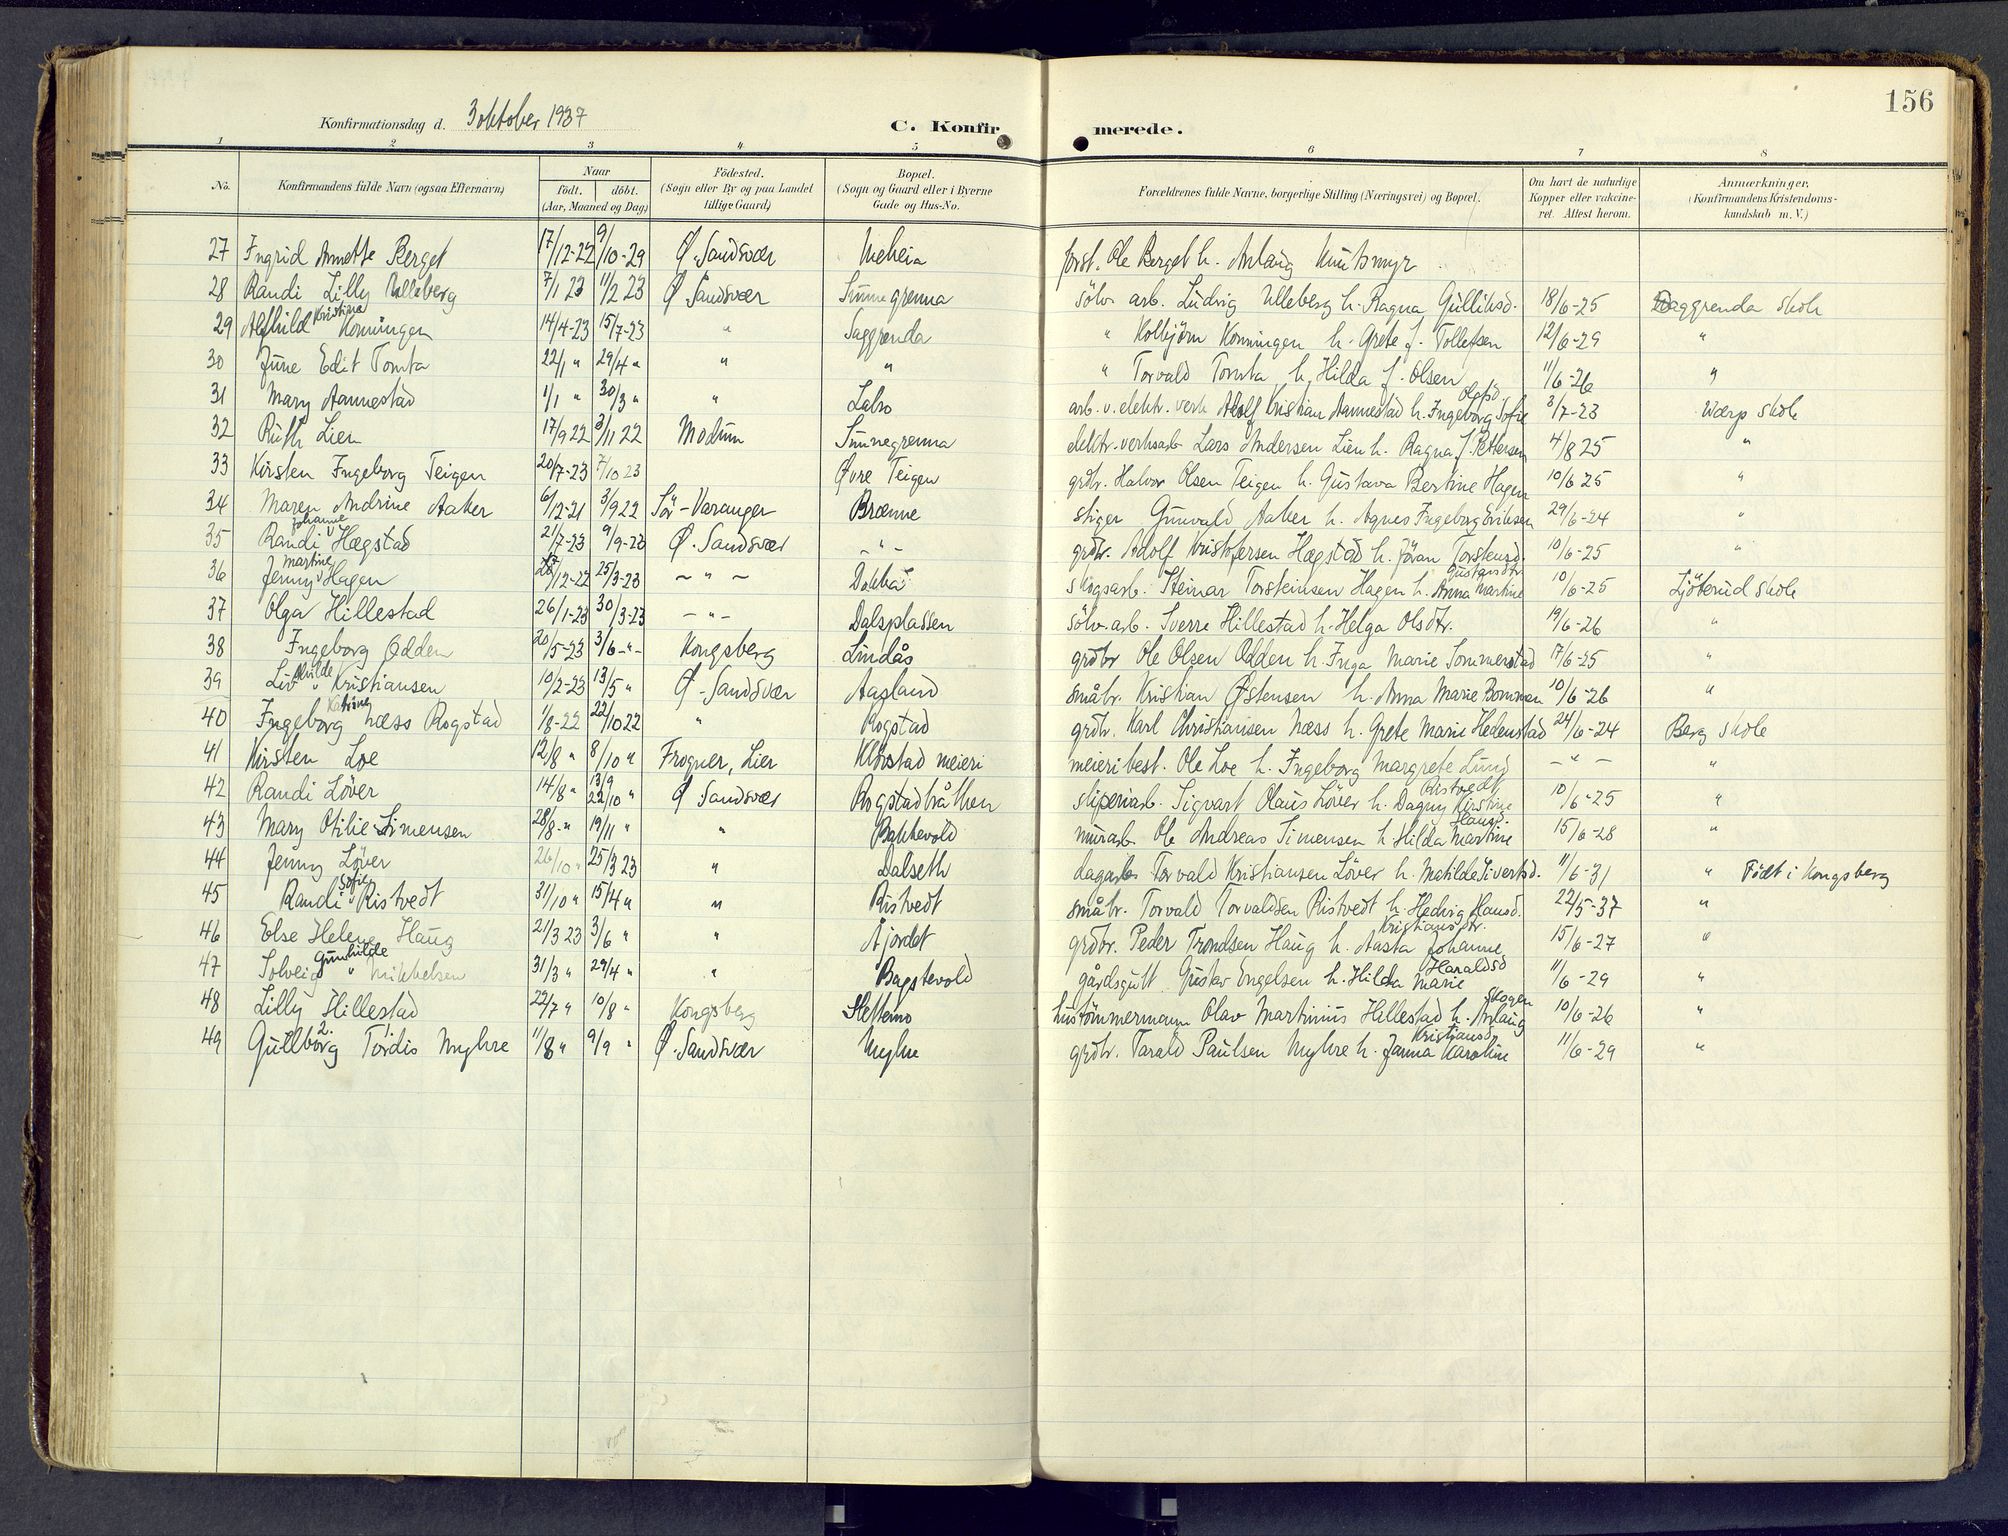 156
Konfirmationsdag d. 3 oktober 1937
C. Konfirmerede.
1 2 3 4 5 6 7 8
No. Konfirmandens fulde Navn (ogsaa Efternavn) Naar født. døbt. (Aar, Maaned og Dag) Fødested. (Sogn eller By og paa Landet tillige Gaard) Bopæl. (Sogn og Gaard eller i Byerne Gade og Hus-No. Forældrenes fulde Navne, borgerlige Stilling (Næringsvei) og Bopæl. Om havt de naturlige Kopper eller vakcineret. Attest herom. Anmærkninger. (Konfirmandens Kristendomskundskab m. V.)
27 Ingrid Annette Berget 17/12-22 9/10-29 Ø. Sandsvær Meheia forst. Ole Berget h. Aslaug Knutsmyr
28 Randi Lilly Ulleberg 7/1 23 11/2 23 Ø Sandsvær Sunnegrenna sölv. arb. Ludvig Ulleberg h. Ragna Gulliksd. 18/6-25 Saggrenda skole
29 Alfhild Kristine Konningen 14/4-23 15/7-23 " Saggrenda " Kolbjörn Konningen h. Grete f. Tollefsen 12/6-29 "
30 June Edit Tomta 22/1 " 29/4 " " " " Torvald Tomta h. Hilda f. Olsen 11/6-26 "
31 Mary Aannestad 1/1 " 30/3 " " Labro arb. v. elektr. verk Adolf Kristian Aannestad h. Ingeborg Sofie Olsd 3/7-23 Wærp skole
32 Ruth Lien 17/9 22 3/11 22 Modum Sunnegrenna elektr. verksarb Lars Andersen Lien h. Ragna f. Pettersen 4/8 25 "
33 Kirsten Ingeborg Teigen 20/7-23 7/10 23 Øvre Teigen grdbr. Halvor Olsen Teigen h. Gustava Bertine Hagen 10/6 25 "
34 Maren Andrine Aaker 6/12-21 3/9 22 Sör-Varanger Brænne stiger Gunvald Aaker h. Agnes Ingeborg Eriksen 29/6-24 "
35 Randi Johanne Hægstad 21/7-23 9/9-23 Ø. Sandsvær - " - grdbr. Adolf Kristofersen Hægstad h. Jöran Torstensd. 10/6-25 "
36 Jenny Martine Hagen /12-22 25/3-23 - " - Dokka skogsarb. Steinar Torsteinsen Hagen h. Anna Martine Gustavsdtr. 10/6-25 Ljöterud skole
37 Olga Hillestad 26/1-23 30/3-23 - " - Dalsplassen sölv. arb. Sverre Hillestad h. Helga Olsdtr. 19/6-26 "
38 Ingeborg Odden 20/5-23 3/6 - " - Kongsberg Lindås grdbr Ole Olsen Odden h. Inga Marie Sommerstad 17/6-25 "
39 Liv Alvilde Kristiansen 10/2-23 13/5 " Ø. Sandsvær Aasland småbr. Kristian Østensen h. Anna Marie Bommen 10/6-26 "
40 Ingeborg Katrine Næss Rogstad 1/8-22 22/10 22 " Rogstad grdbr. Karl Christiansen Næss h. Grete Marie Hedenstad 24/6-24 Berg skole
41 Kirsten Loe 12/8 " 8/10 " Frogner, Lier Klørstad meieri meieribest. Ole Loe h. Ingeborg Margrete Lund - " - "
42 Randi Löver 14/8 " 13/9 22/10 " Ø Sandsvær Rogstadbråthen sliperiarb. Sigvart Olaus Löver h. Dagny Kirstine Ristvedt 10/6-25 "
43 Mary Otilie Simensen 28/8-" 19/11 " " Bakkevold murarb. Ole Andreas Simensen h Hilda Martine Hansd. 15/6-28 "
44 Jenny Löver 26/10 " 25/3 23 " Dalseth dagarb Torvald Kristiansen Löver h. Matilde Sivertsd. 11/6-31 " Född i Kongsberg
45 Randi Sofie Ristvedt 31/10 " 15/4 " " Ristvedt småbr. Torvald Torvaldsen Ristvedt h. Hedvig Hansd. 22/5-37 "
46 Else Helene Haug 21/3 23 3/6 " " Åjordet grdbr. Peder Trondsen Haug h. Aasta Johanne Kristiansdtr. 15/6-27 "
47 Solveig Gunhilde Mikkelsen 31/3 " 29/4 " " Bagstevold gårdsgutt Gustav Engelsen h. Hilda Marie Haraldsd 11/6-29 "
48 Lilly Hillestad 22/7 " 10/8 " Kongsberg Slettemo hustömmermann Olav Martinius Hillestad h. Aslaug Skogen 10/6-26 "
49 Gullborg 2. Tordis 1. Myhre 11/8 " 9/9 " Ø. Sandsvær Myhre grdbr. Tarald Paulsen Myhre h. Janna Karoline Kristiansd. 11/6-29 "